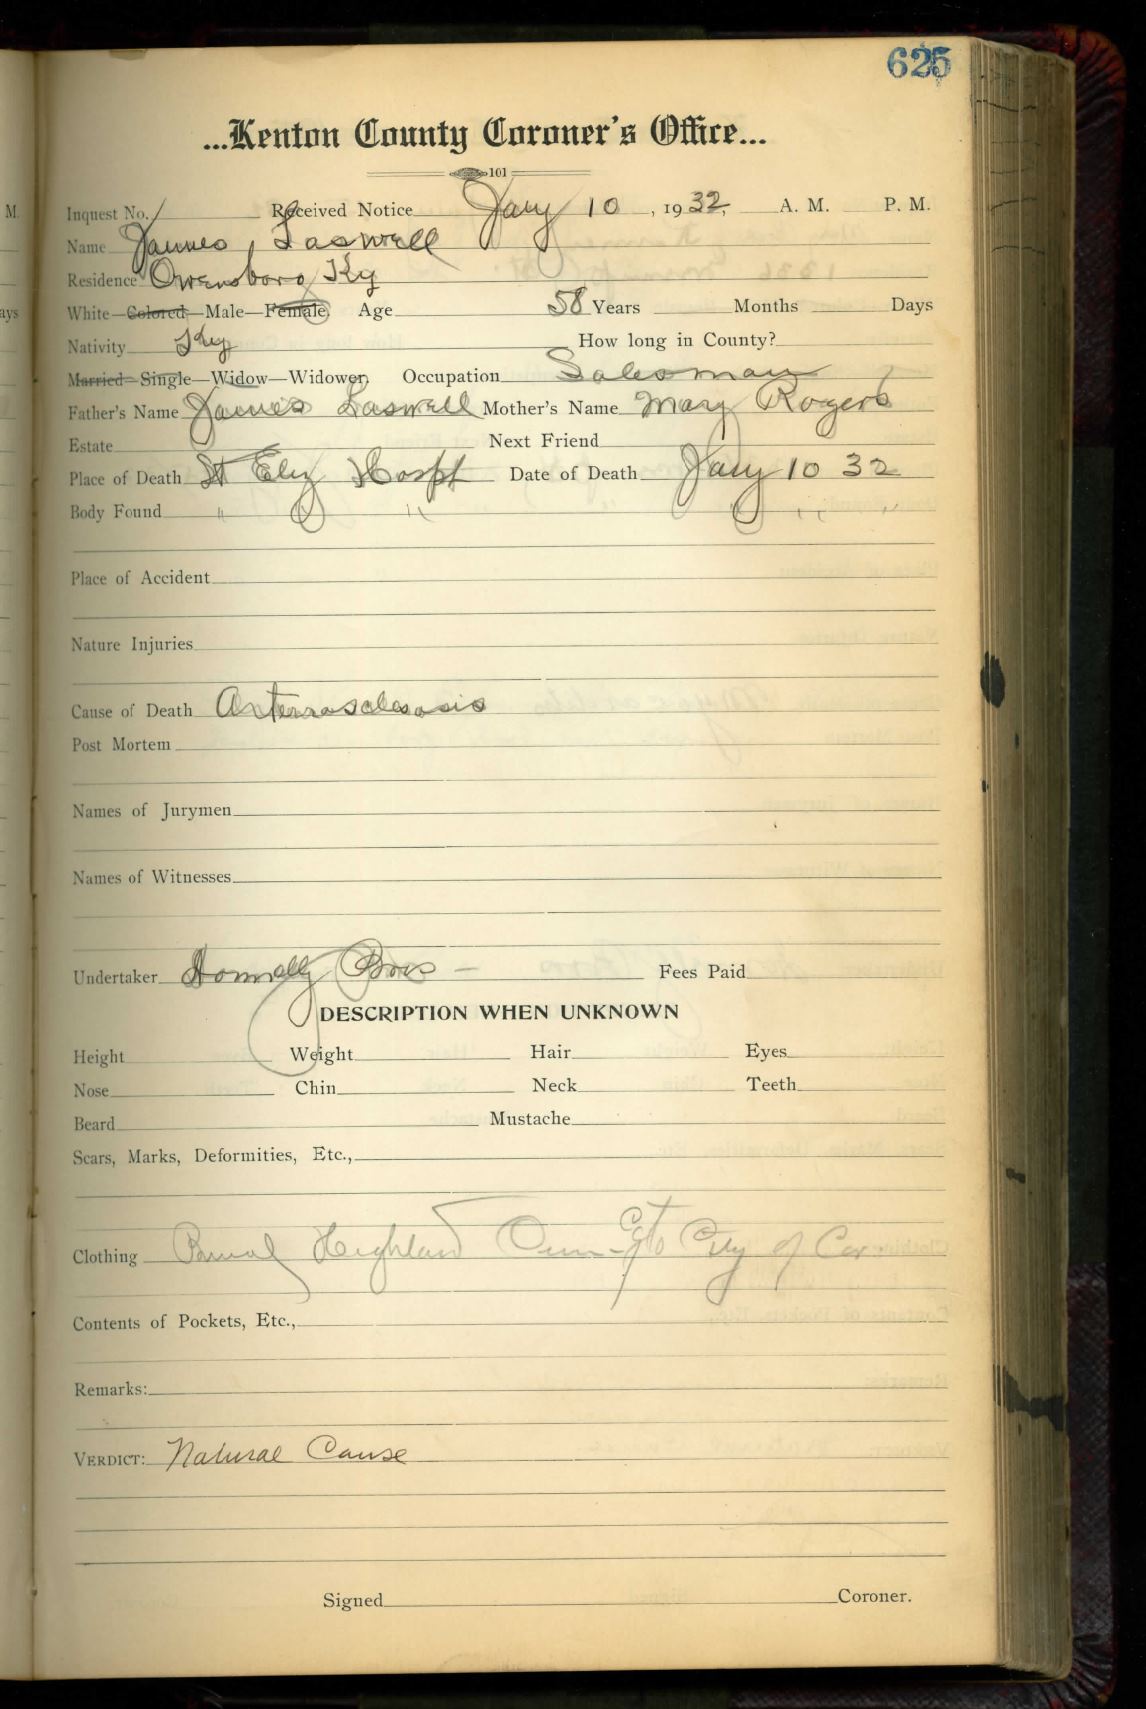 625
...Kenton County Coroner's Office...
101
Inquest No. Received Notice Jany 10, 1932, A. M. P. M.
Name James Laswell
Residence Owensboro Ky
White—Colored—Male—Female. Age 58 Years Months Days
Nativity Ky How long in County?
Married—Single—Widow—Widower, Occupation Salesman
Father's Name James Laswell Mother's Name Mary Rogers
Estate Next Friend
Place of Death St Eliz Hospt Date of Death Jany 10 32
Body Found " " " "
Place of Accident
Nature Injuries
Cause of Death Arterrosclesosis
Post Mortem
Names of Jurymen
Names of Witnesses
Undertaker Donnelly Bros — Fees Paid
DESCRIPTION WHEN UNKNOWN
Height Weight Hair Eyes
Nose Chin Neck Teeth
Beard Mustache
Scars, Marks, Deformities, Etc.,
Clothing Burial Highland Cem City of Cov
Contents of Pockets, Etc.,
Remarks:
VERDICT: Natural Cause
Signed Coroner.
M.
ays